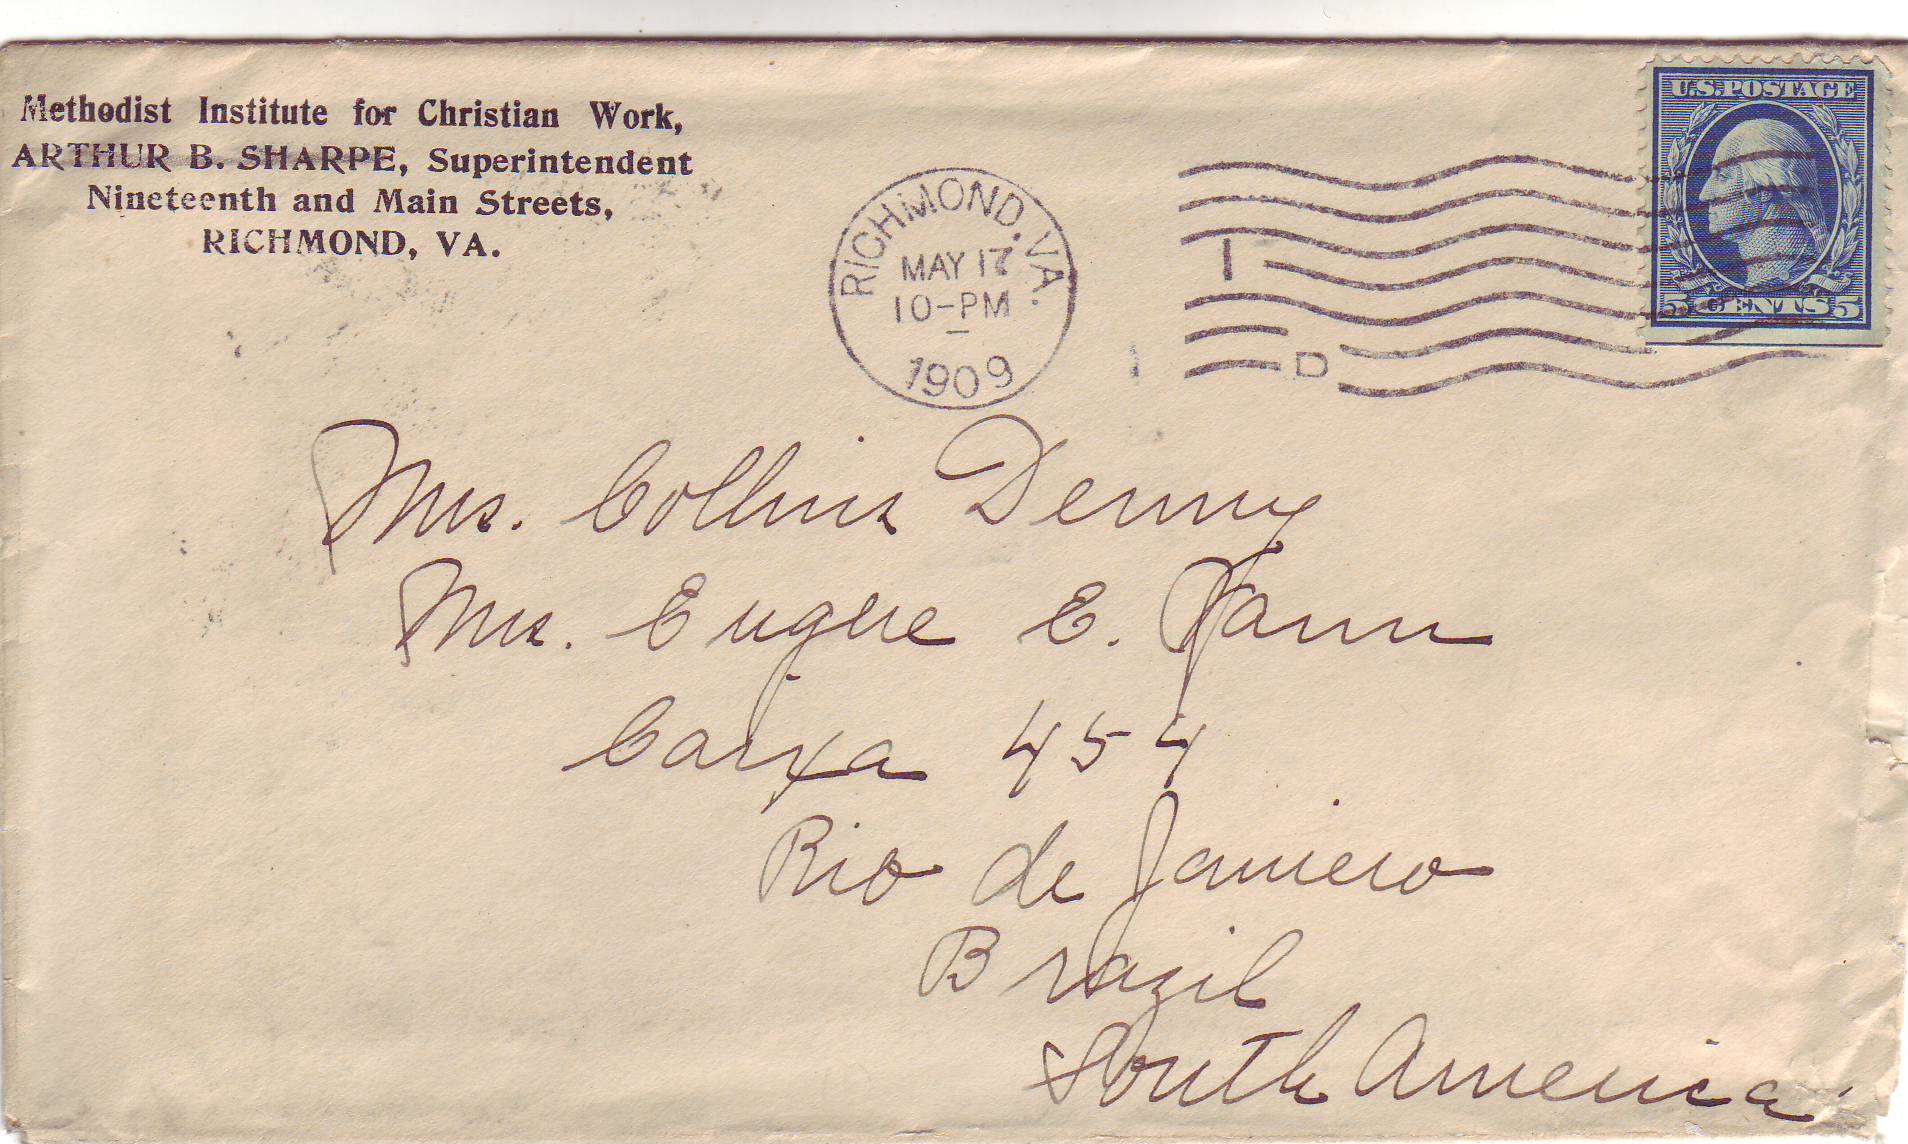 Methodist Institute for Christian Work,
ARTHUR B. SHARPE, Superintendent
Nineteenth and Main Streets,
RICHMOND, VA.
RICHMOND, VA.
MAY 17
10-PM
1909
1
D
U.S. POSTAGE
5 CENTS 5
Mrs. Collins Denny
Mrs. Eugene E. Vann
Caixa 454
Rio de Janiero
Brazil
South America